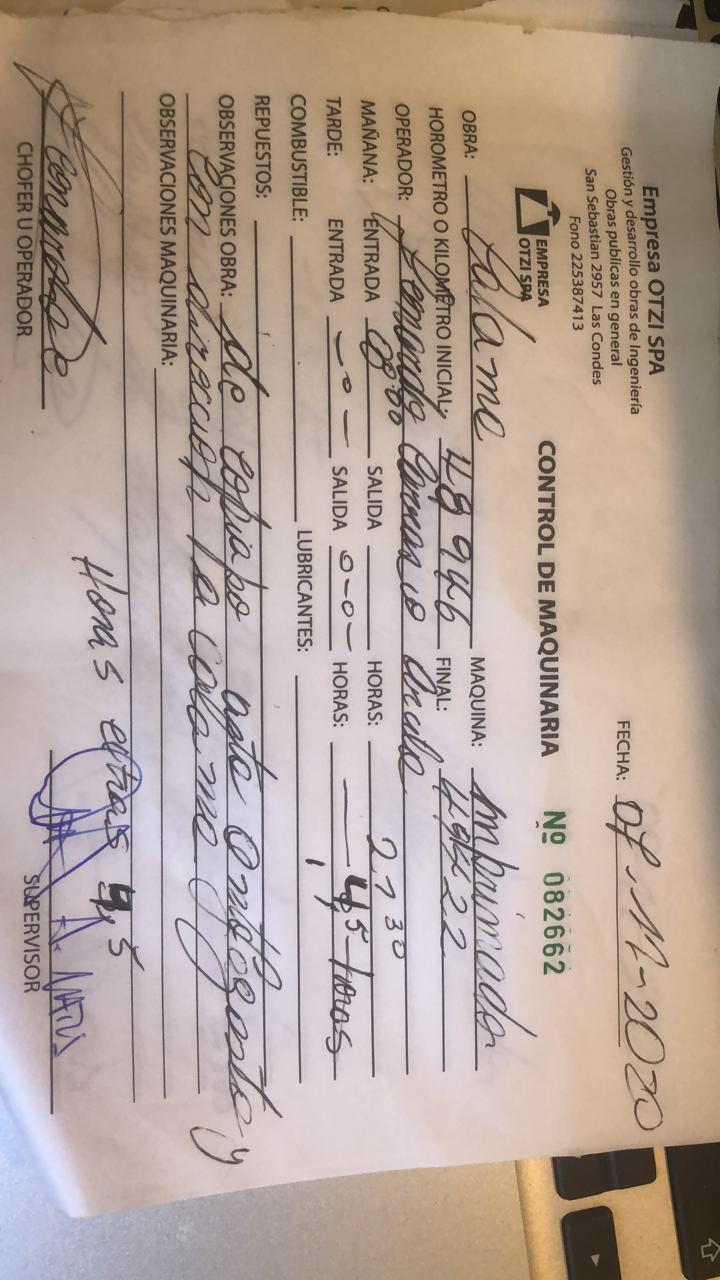 Empresa OTZI SPA
Gestión y desarrollo obras de Ingeniería
Obras publicas en general
San Sebastian 2957 Las Condes
Fono 225387413
FECHA: 07-11-2020
EMPRESA
OTZI SPA
CONTROL DE MAQUINARIA Nº 082662
OBRA: Calama MAQUINA: Imprimador
HOROMETRO O KILOMETRO INICIAL: 48946 FINAL: 49422
OPERADOR:
MAÑANA: ENTRADA 08:00 SALIDA HORAS: 21 30
TARDE: ENTRADA -0- SALIDA 0-0- HORAS: 4,5 Horas
COMBUSTIBLE: LUBRICANTES:
REPUESTOS:
OBSERVACIONES OBRA: de copiapo asta Antofgasta y
con direccion la calama
OBSERVACIONES MAQUINARIA:
Horas extras 4,5
CHOFER U OPERADOR
SUPERVISOR